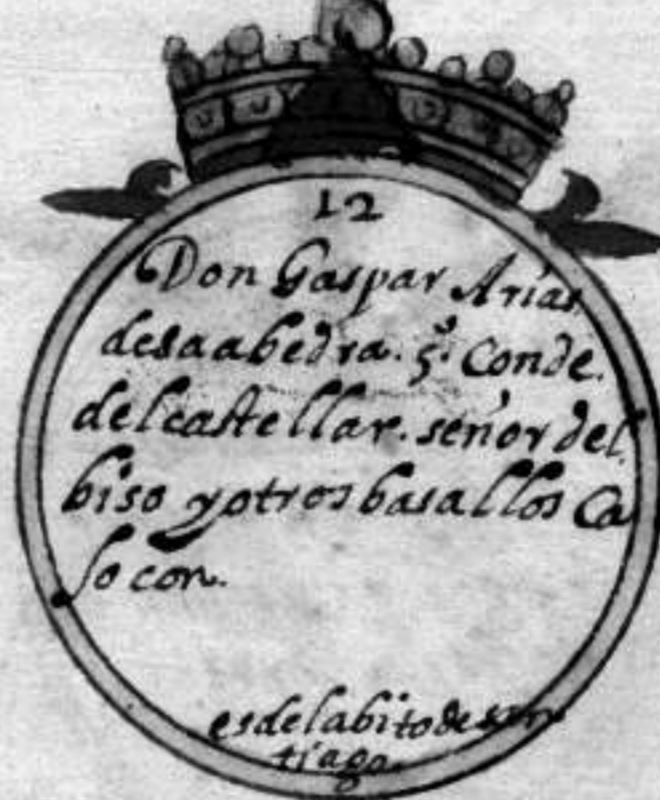 12
Don Gaspar Arias
desaabedra. 5º. Conde.
delcastellar. señor del
biso y otros basallos Ca
so con.
es del abito de san
tiago